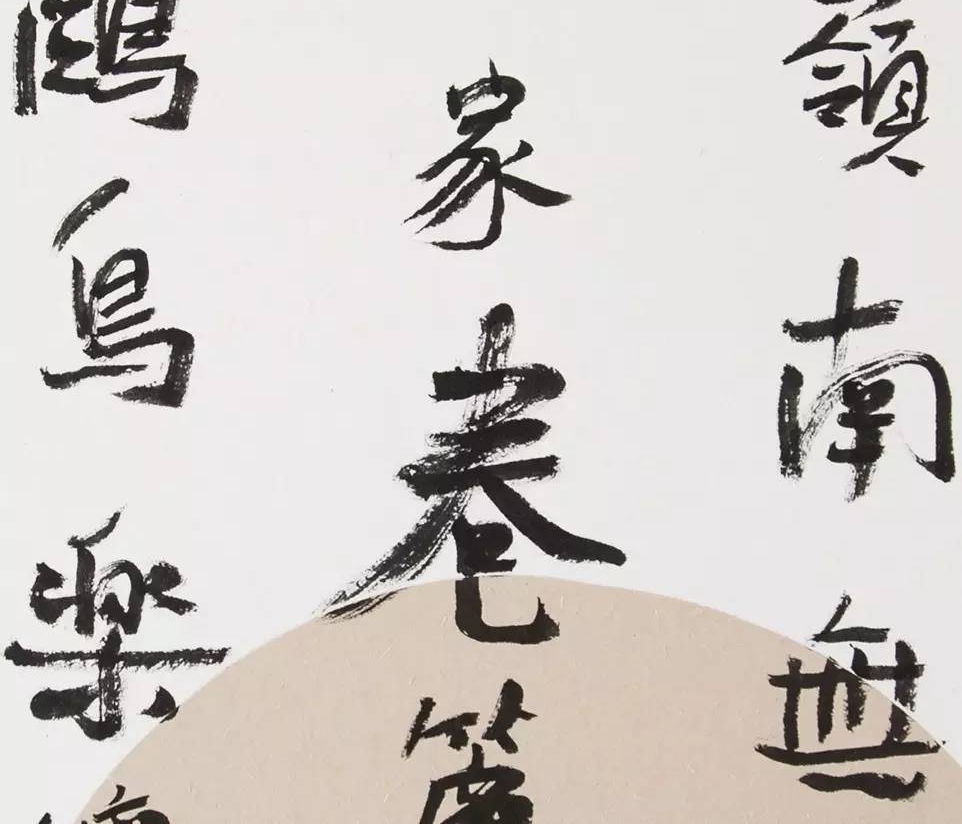 嶺南無
家卷簾
鷗鳥樂